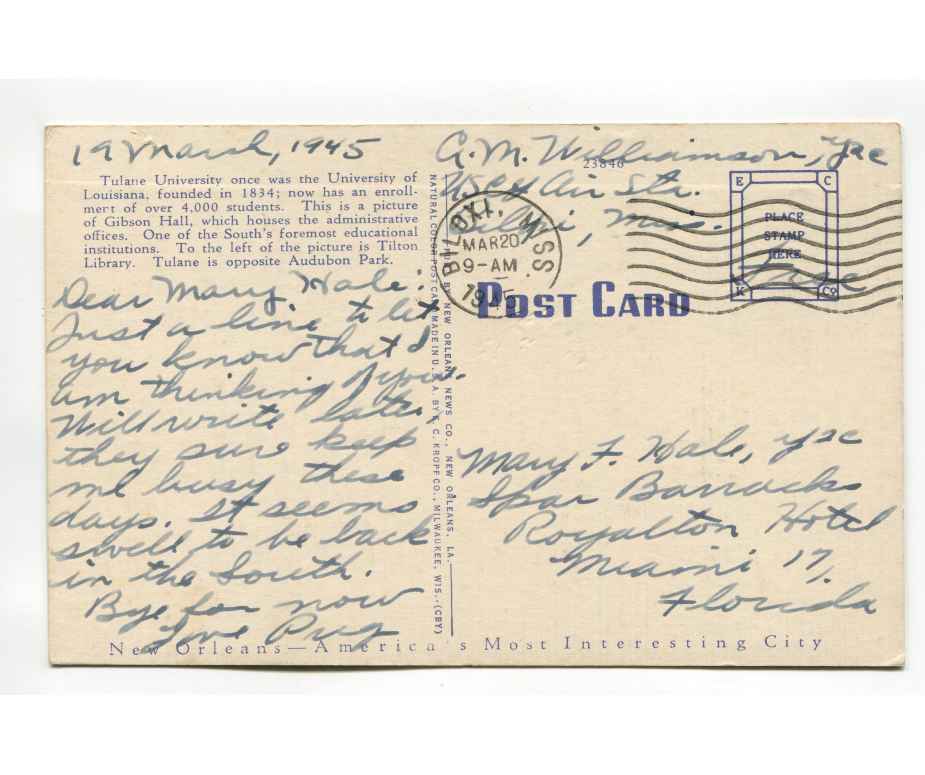 19 March, 1945
Tulane University once was the University of
Louisiana, founded in 1834; now has an enroll-
ment of over 4,000 students. This is a picture
of Gibson Hall, which houses the administrative
offices. One of the South's foremost educational
institutions. To the left of the picture is Tilton
Library. Tulane is opposite Audubon Park.
Dear Mary Hale:
Just a line to let
you know that I
am thinking of you.
Will write later
they sure keep
me busy these
days. It seems
swell to be back
in the South.
Bye for now
Love Pug
NATURAL COLOR POST CARD MADE IN U.S.A. BY E. C. KROPP CO., MILWAUKEE, WIS. (CBY)
PUB. BY NEW ORLEANS NEWS CO., NEW ORLEANS, LA.
A. M. Williamson, Y3c
23846
USCG Air Sta.
Biloxi, Miss.
BILOXI, MISS
MAR 20
9-AM
1945
E C
PLACE
STAMP
HERE
K Co
Free
POST CARD
Mary F. Hale, Y3c
Spar Barracks
Royalton Hotel
Miami 17,
Florida
New Orleans—America's Most Interesting City